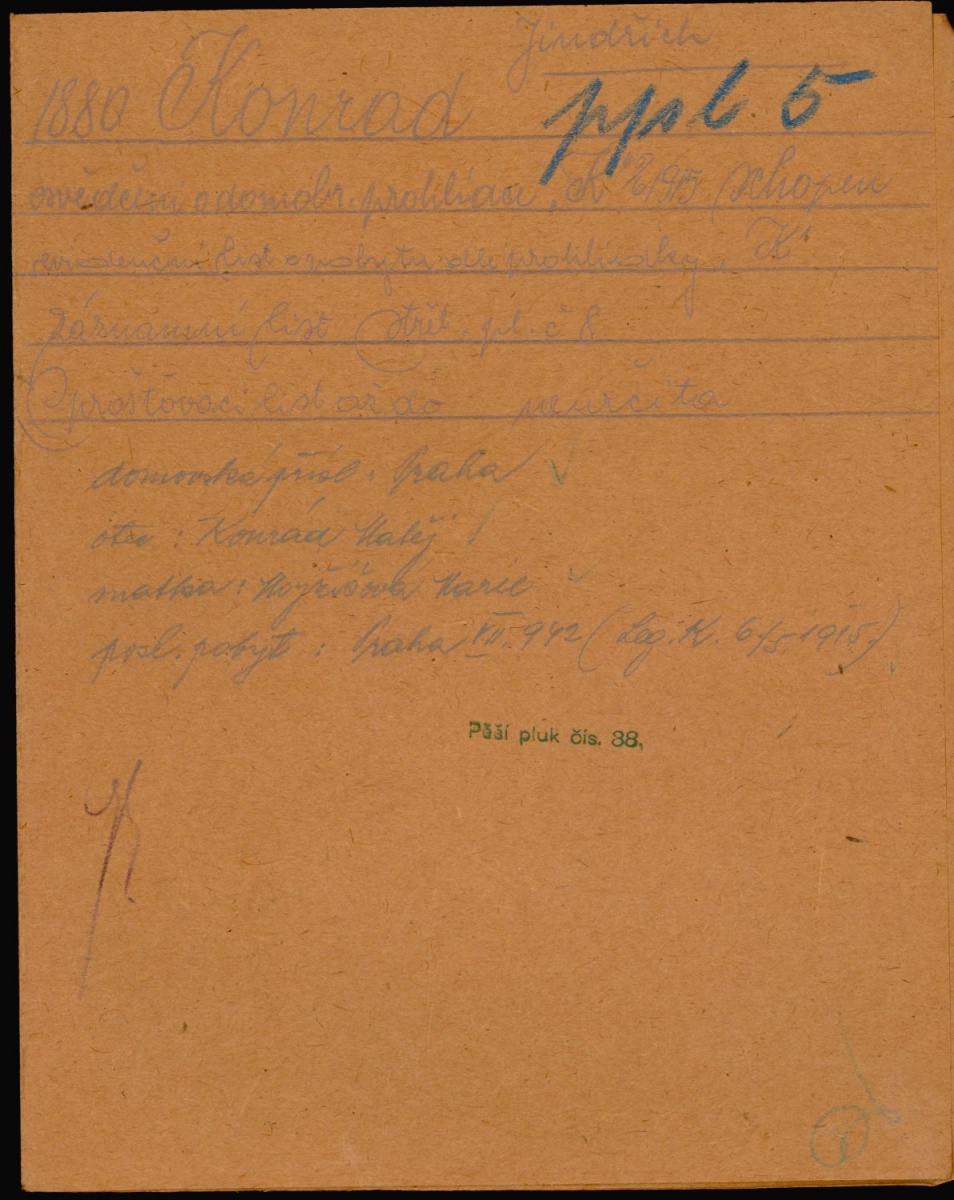 Jindřich
1880 Konrad ppsl 5
osvědčení o domobr. prohlídce, K 1915 schopen
evidenční list o pobytu dle prohlídky, K
Záznamní list Střel. pl. č 8
Sprošťovací list až do neurčita
domovská přísl: Praha
otec: Konrád Matěj
matka: Marie
posl. pobyt: Praha VII. 942 (Leg. K. 6/5 1915.)
Pěší pluk čís. 38,